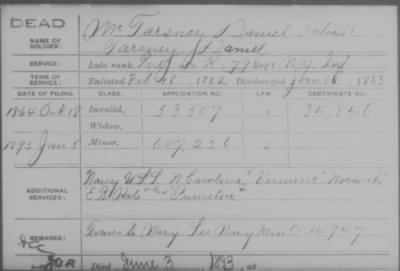 DEAD
NAME OF SOLDIER: McTarsney Daniel (alias)
Tarsney, Daniel
SERVICE: Late rank, Co. K, 79 Reg't N.Y. Inf
TERM OF SERVICE: Enlisted Feb 18, 1862 Discharged Jan 16, 1863
DATE OF FILING. CLASS. APPLICATION NO. LAW. CERTIFICATE NO.
1864 Oct 18 Invalid, 53,507 34,846
Widow,
1895 Jan 5 Minor, 607,256
ADDITIONAL SERVICES: Navy U.S.S. N. Carolina, "Vermont" Norwich"
E.B. Hale" "Primrose"
REMARKS: Navy Min O 14747
Died June 3, 1893, at